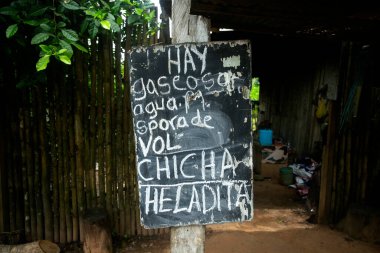 HAY
gaseosa
agua
sporade
VOL
CHICHA
HELADITA